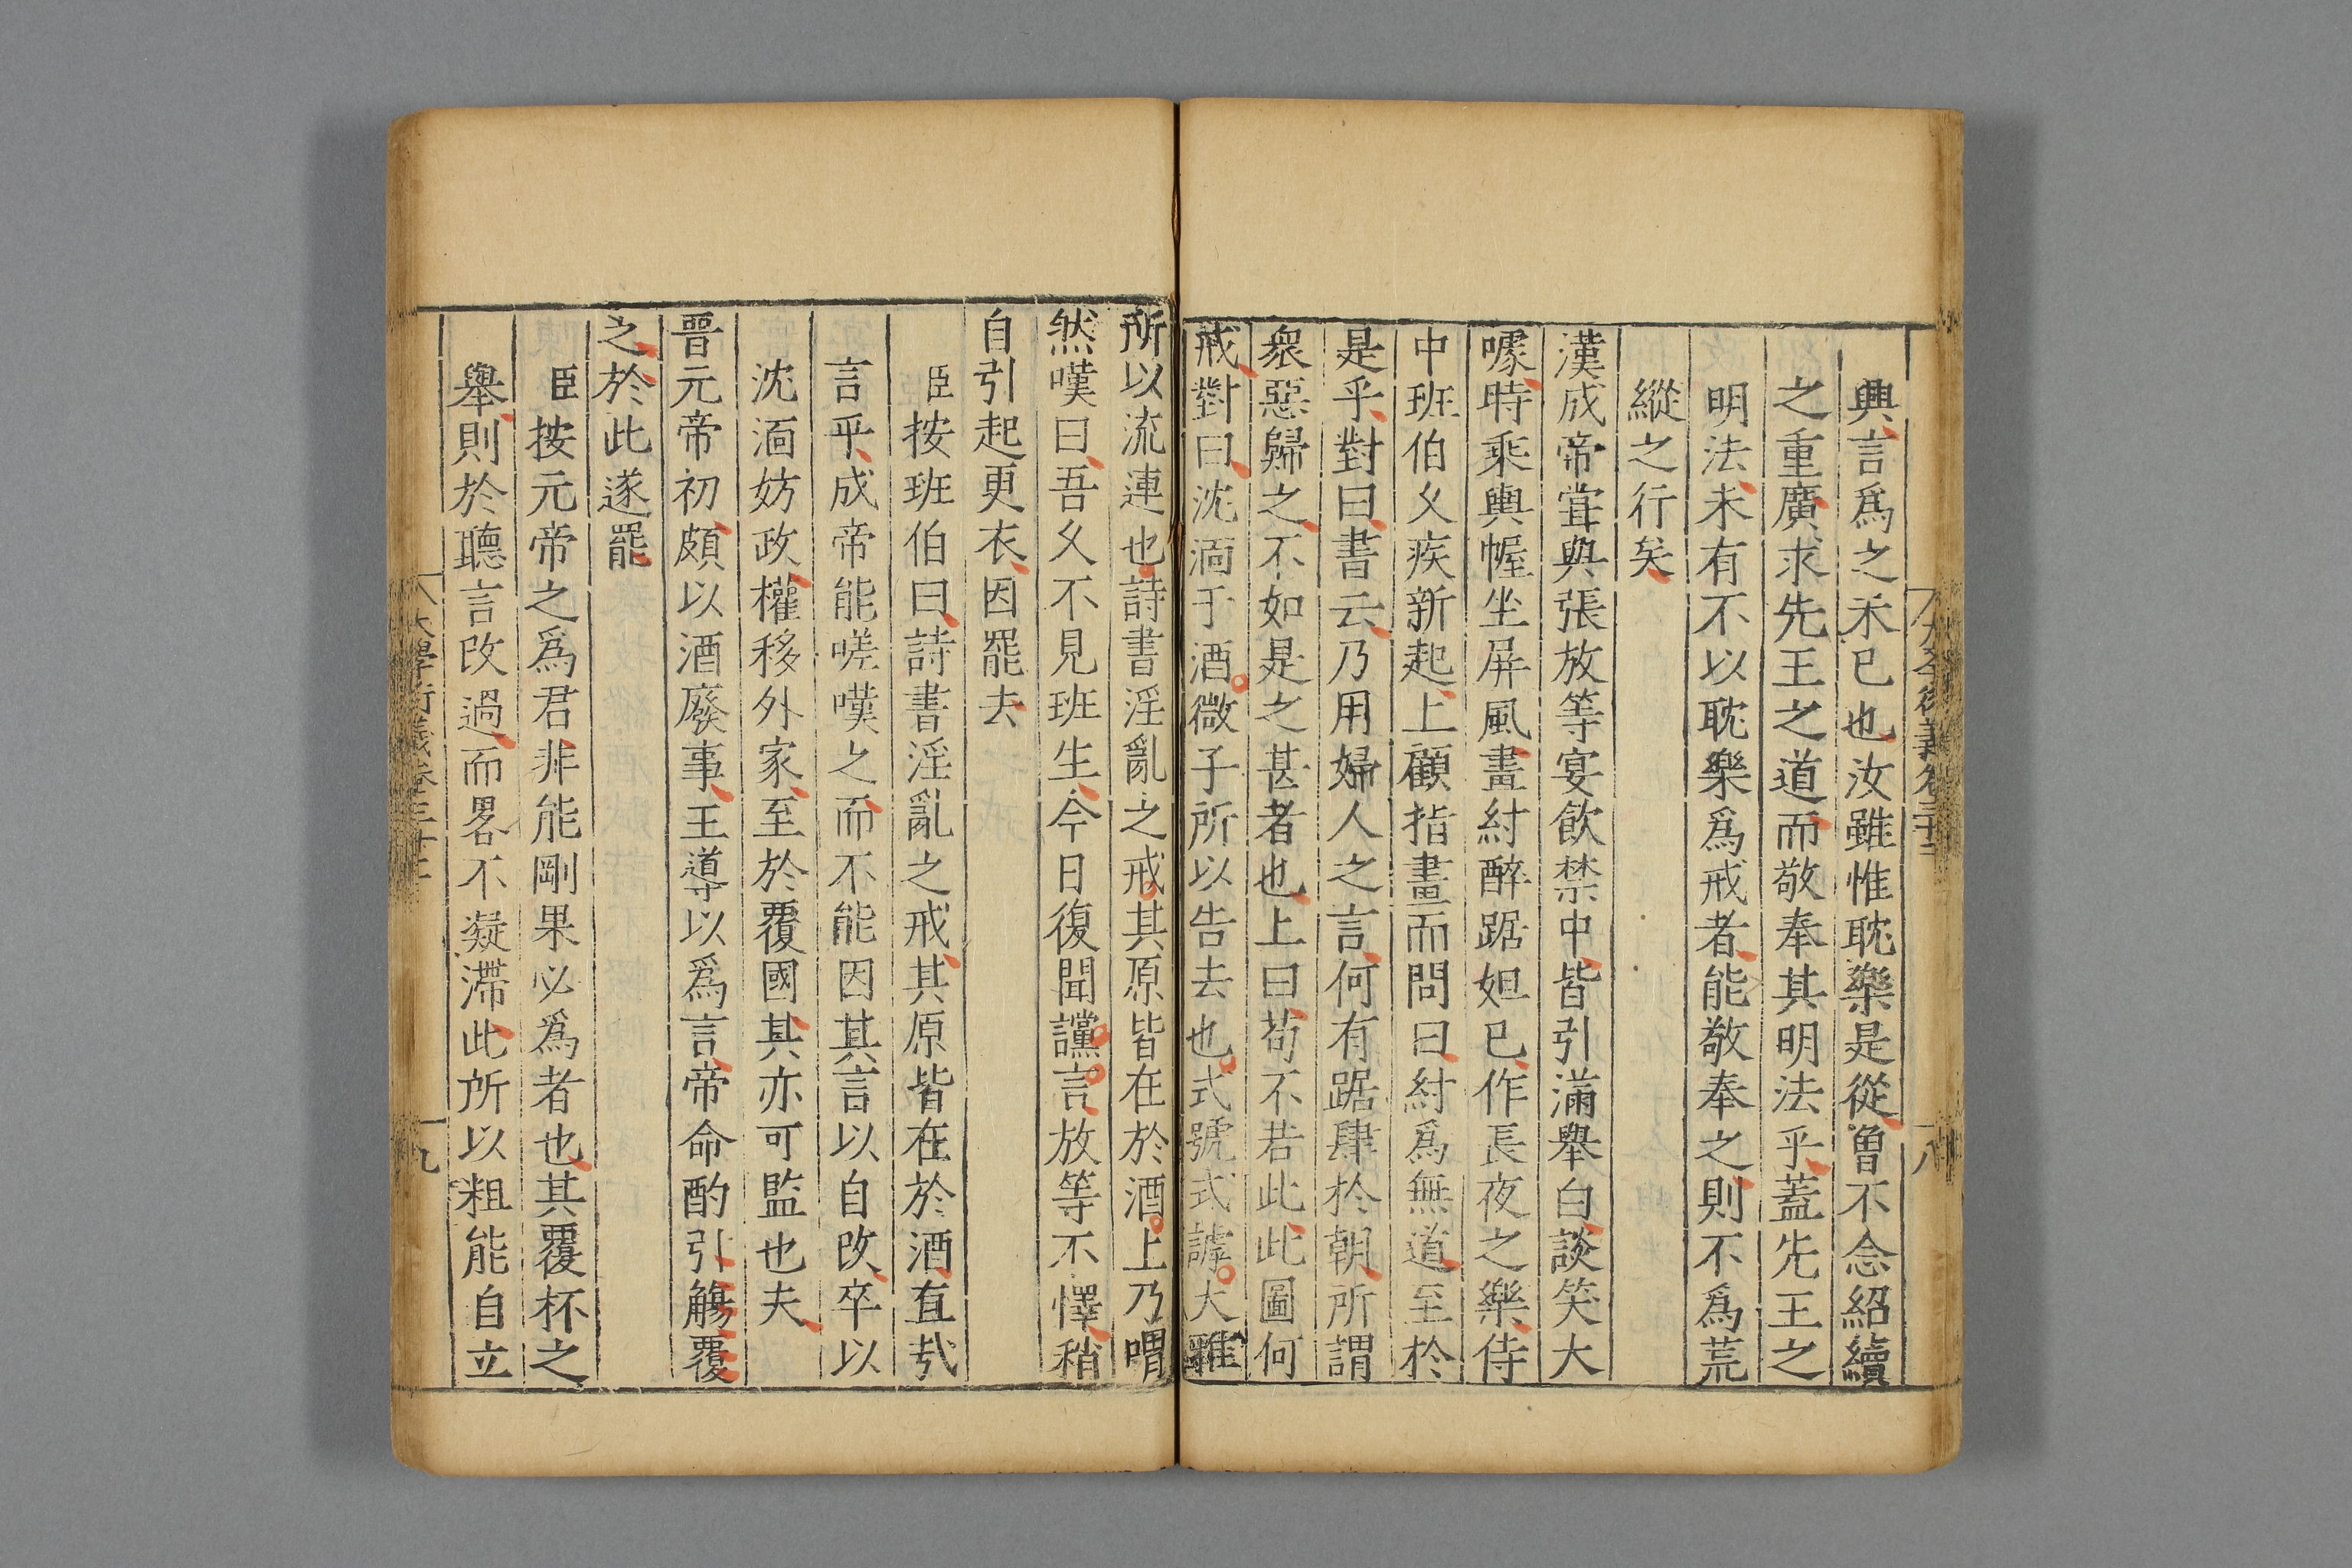 興言爲之未已也汝雖惟耽樂是從曽不念紹續
之重廣求先王之道而敬奉其明法乎蓋先王之
明法未有不以耽樂爲戒者能敬奉之則不爲荒
縱之行矣
漢成帝甞與張放等宴飲禁中皆引滿舉白談笑大
噱時乘輿幄坐屏風畫紂醉踞妲已作長夜之樂侍
中班伯乆疾新起上顧指畫而問曰紂爲無道至於
是乎對曰書云乃用婦人之言何有踞肆於朝所謂
衆惡歸之不如是之甚者也上曰苟不若此此圖何
戒對曰沈湎于酒微子所以告去也式號式謼大雅
所以流連也詩書淫亂之戒其原皆在於酒上乃喟
然嘆曰吾乆不見班生今日復聞讜言放等不懌稍
自引起更衣因罷去
臣按班伯曰詩書淫亂之戒其原皆在於酒直㢤
言乎成帝能嗟嘆之而不能因其言以自改卒以
沈湎妨政權移外家至於覆國其亦可監也夫
晋元帝初頗以酒廢事王導以爲言帝命酌引觴覆
之於此遂罷
臣按元帝之爲君非能剛果必爲者也其覆杯之
舉則於聽言改過而畧不凝滯此所以粗能自立